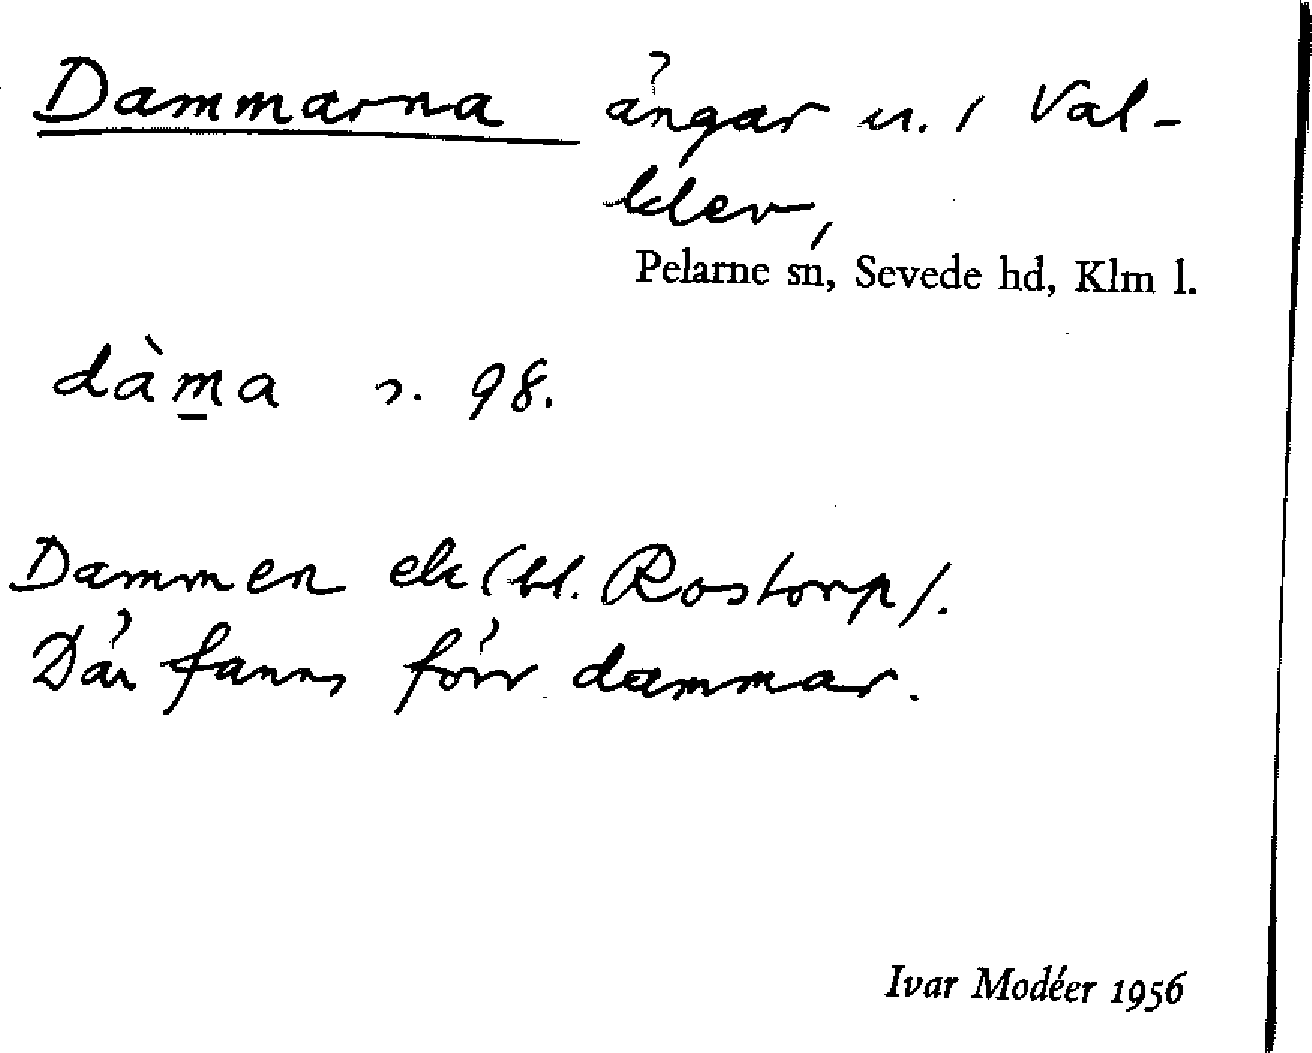 Dammarna ängar u. i Val-
klev,
Pelarne sn, Sevede hd, Klm l.
dàm̲a s. 98.
Dammen ek (bl. Rostorp).
Där fanns förr dammar.
Ivar Modéer 1956